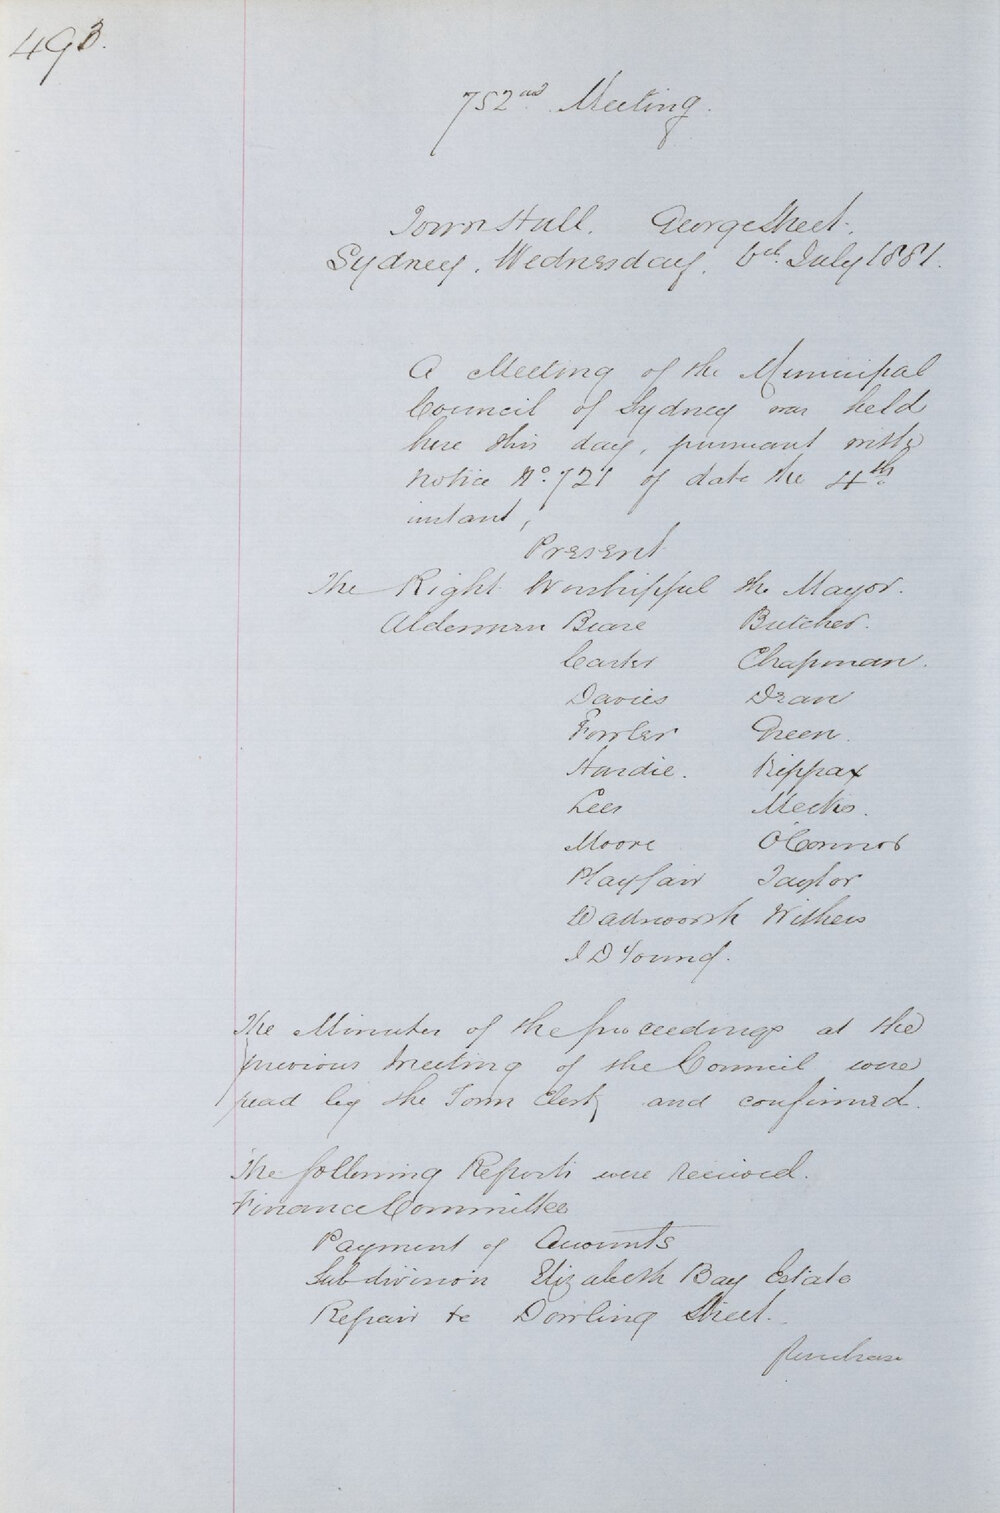 493.
752nd Meeting.
Town Hall. George Street.
Sydney. Wednesday. 6th July 1881.
A Meeting of the Municipal
Council of Sydney was held
here this day, pursuant with
notice No. 721 of date the 4th
instant,
Present
The Right Worshipful the Mayor.
Aldermen Beare Butcher.
Carter Chapman.
Davies Dean
Fowler Green.
Hardie. Kippax
Lees Meeks.
Moore O'Connor
Playfair Taylor
Wadsworth Withers
J D Young.
The Minutes of the proceedings at the
previous Meeting of the Council were
read by the Town Clerk and confirmed.
The following Reports were received.
Finance Committee
Payment of Accounts
Subdivision Elizabeth Bay Estate
Repair &c Dowling Street.
Purchase